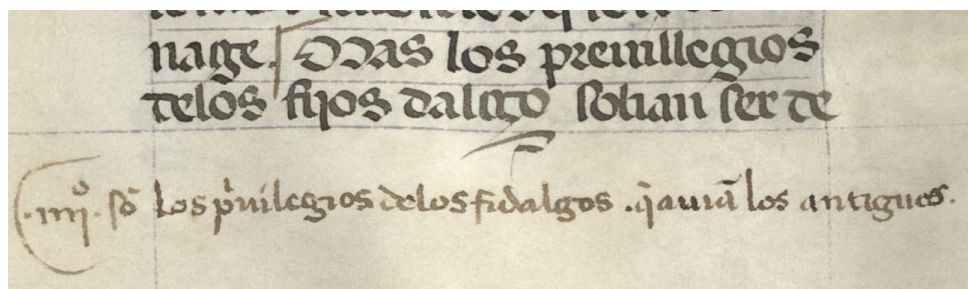 nage. Mas los preuillegios
delos fijos dalgo solian ser de
.iiijº. sõ los pͥuilegios delos fidalgos .q̃ auiã los antiguos.